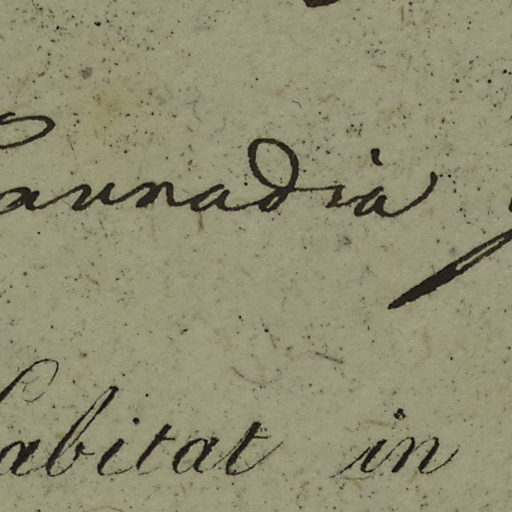 Caunadia
habitat in